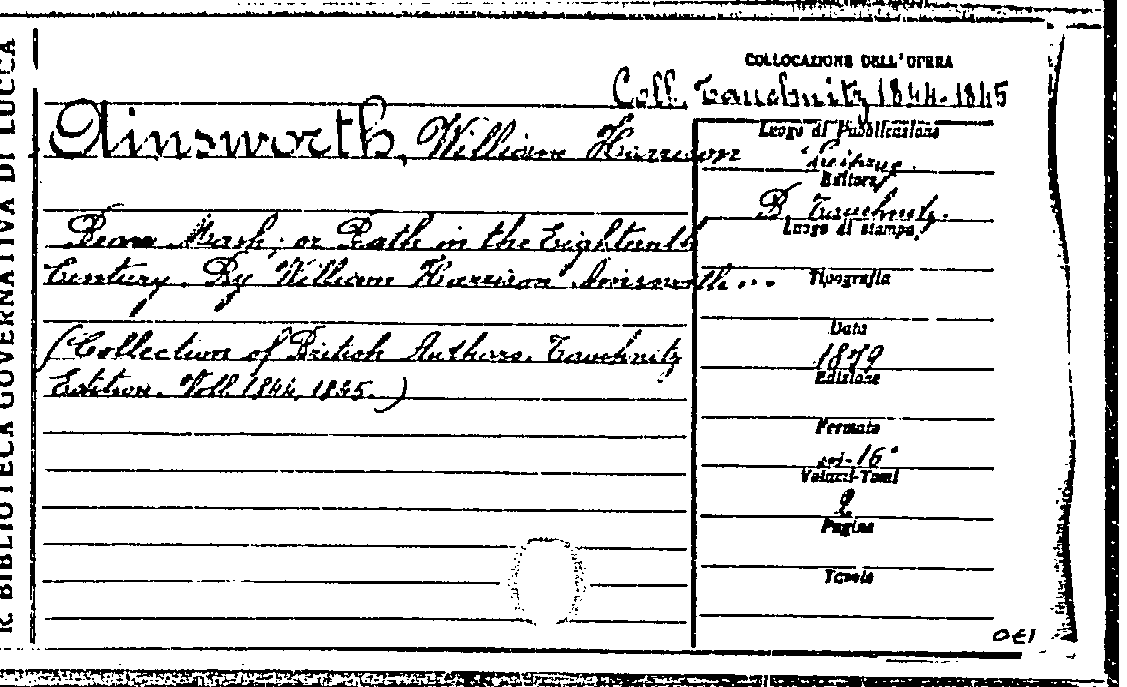 R. BIBLIOTECA GOVERNATIVA DI LUCCA
COLLOCAZIONE DELL'OPERA
Coll. Tauchnitz 1844-1845
Ainsworth, William Harrison
Beau Nash; or Bath in the Eighteenth
Century. By William Harrison Ainsworth...
(Collection of British Authors. Tauchnitz
Edition. Voll. 1844, 1845.)
Luogo di Pubblicazione
Leipzig
Editore
B. Tauchnitz.
Luogo di stampa
Tipografia
Data
1879
Edizione
Formato
in-16°
Volumi-Tomi
2
Pagine
Tavole